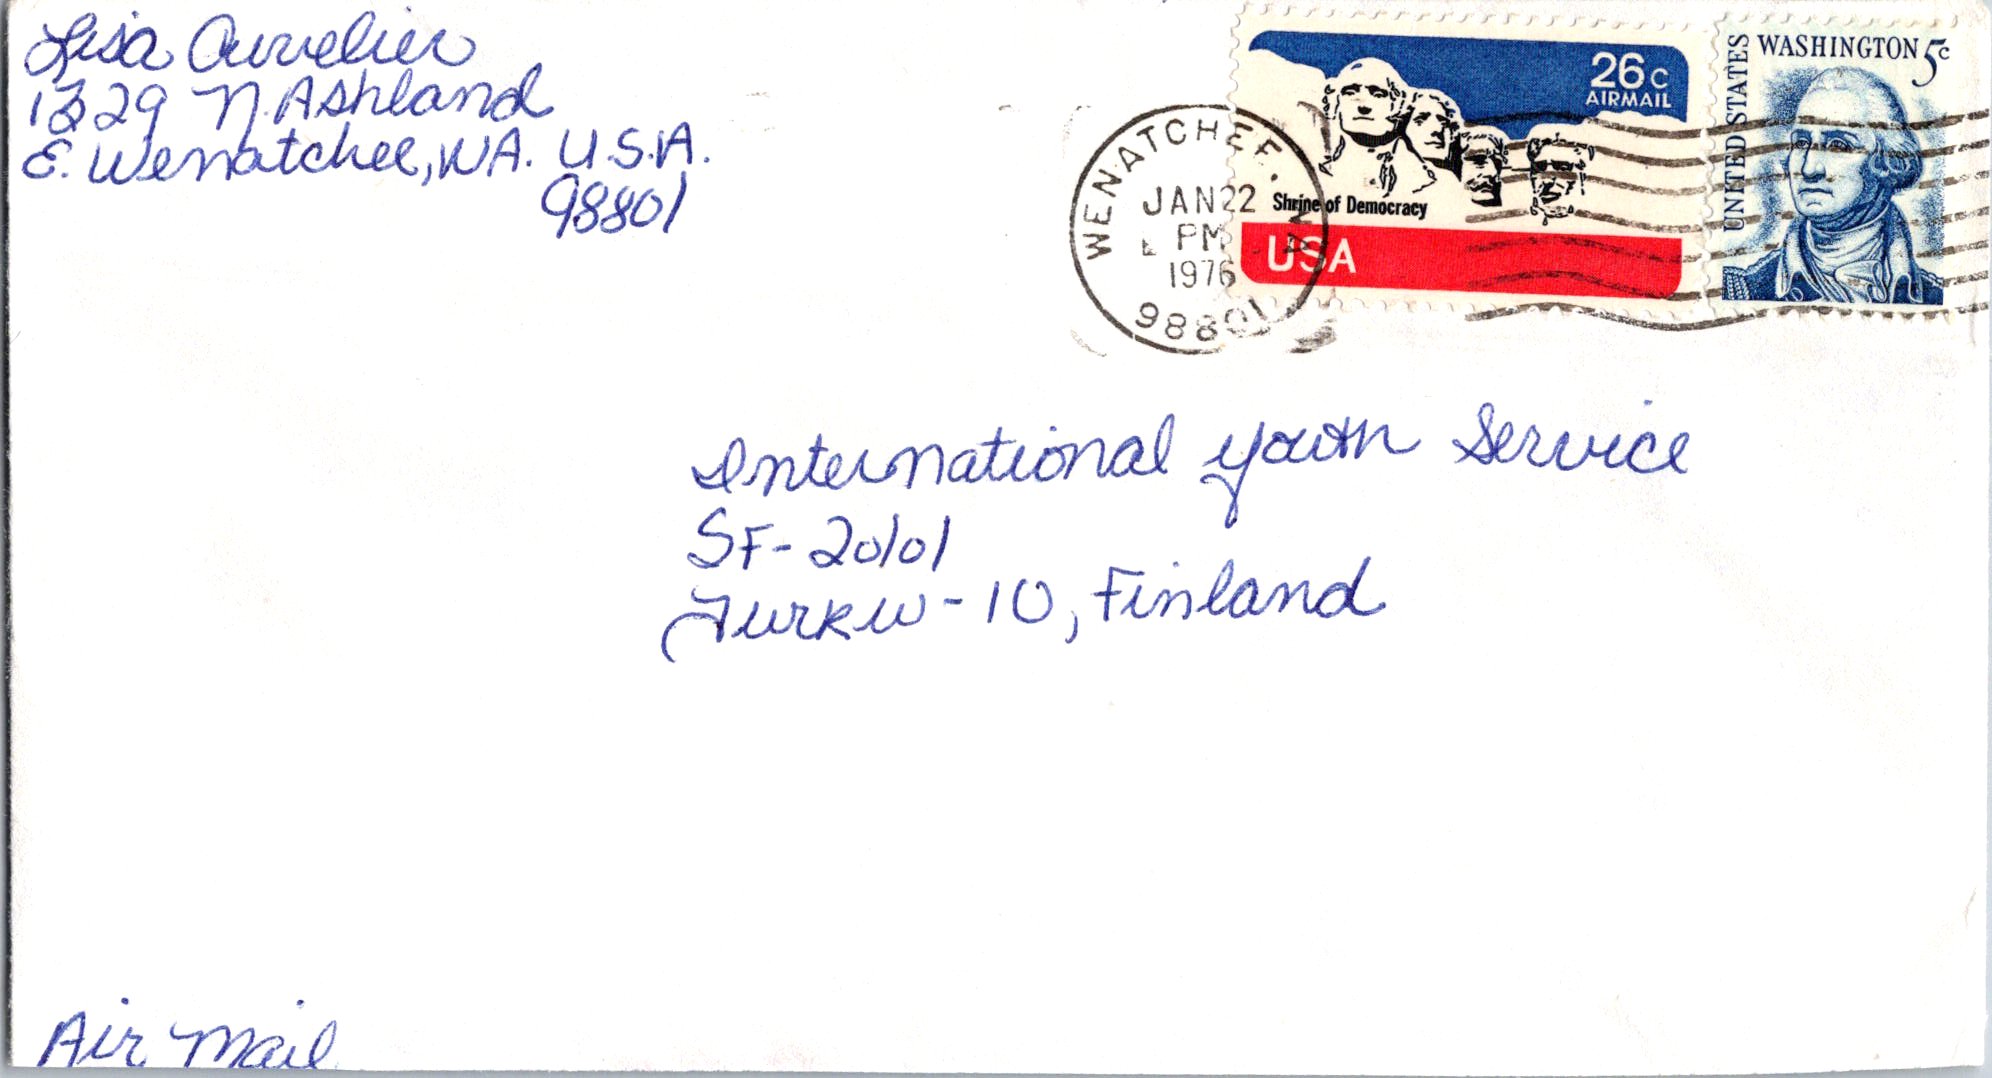 Lisa Aurelier
1329 N. Ashland
E. Wenatchee, WA. U.S.A.
98801
26c
AIRMAIL
Shrine of Democracy
USA
UNITED STATES
WASHINGTON 5c
WENATCHEE, WA
JAN 22
PM
1976
98801
International Youth Service
SF-20101
Turku-10, Finland
Air Mail